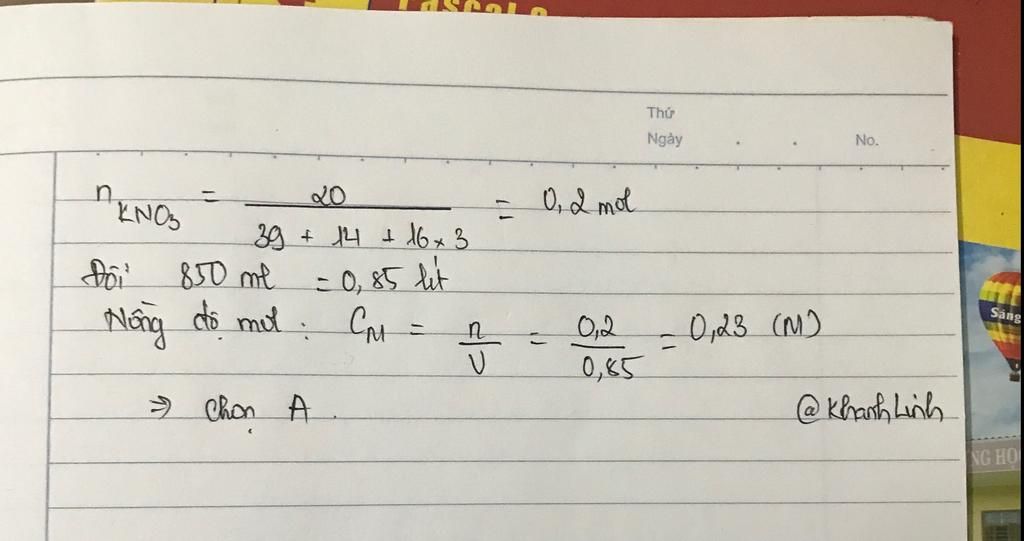 Pascal
Thứ
Ngày . . No.
n KNO3 = 20 / 39 + 14 + 16 x 3 = 0,2 mol
Đổi 850 ml = 0,85 lít
Nồng độ mol : CM = n / V = 0,2 / 0,85 = 0,23 (M)
⇒ Chọn A .
@KhanhLinh
Sáng
NG HỌ